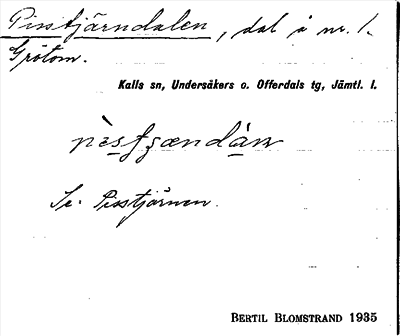 Pisstjärndalen, dal å nr. 1.
Grötom.
Kalls sn, Undersåkers o. Offerdals tg, Jämtl. l.
Se. Pisstjärnen.
BERTIL BLOMSTRAND 1935